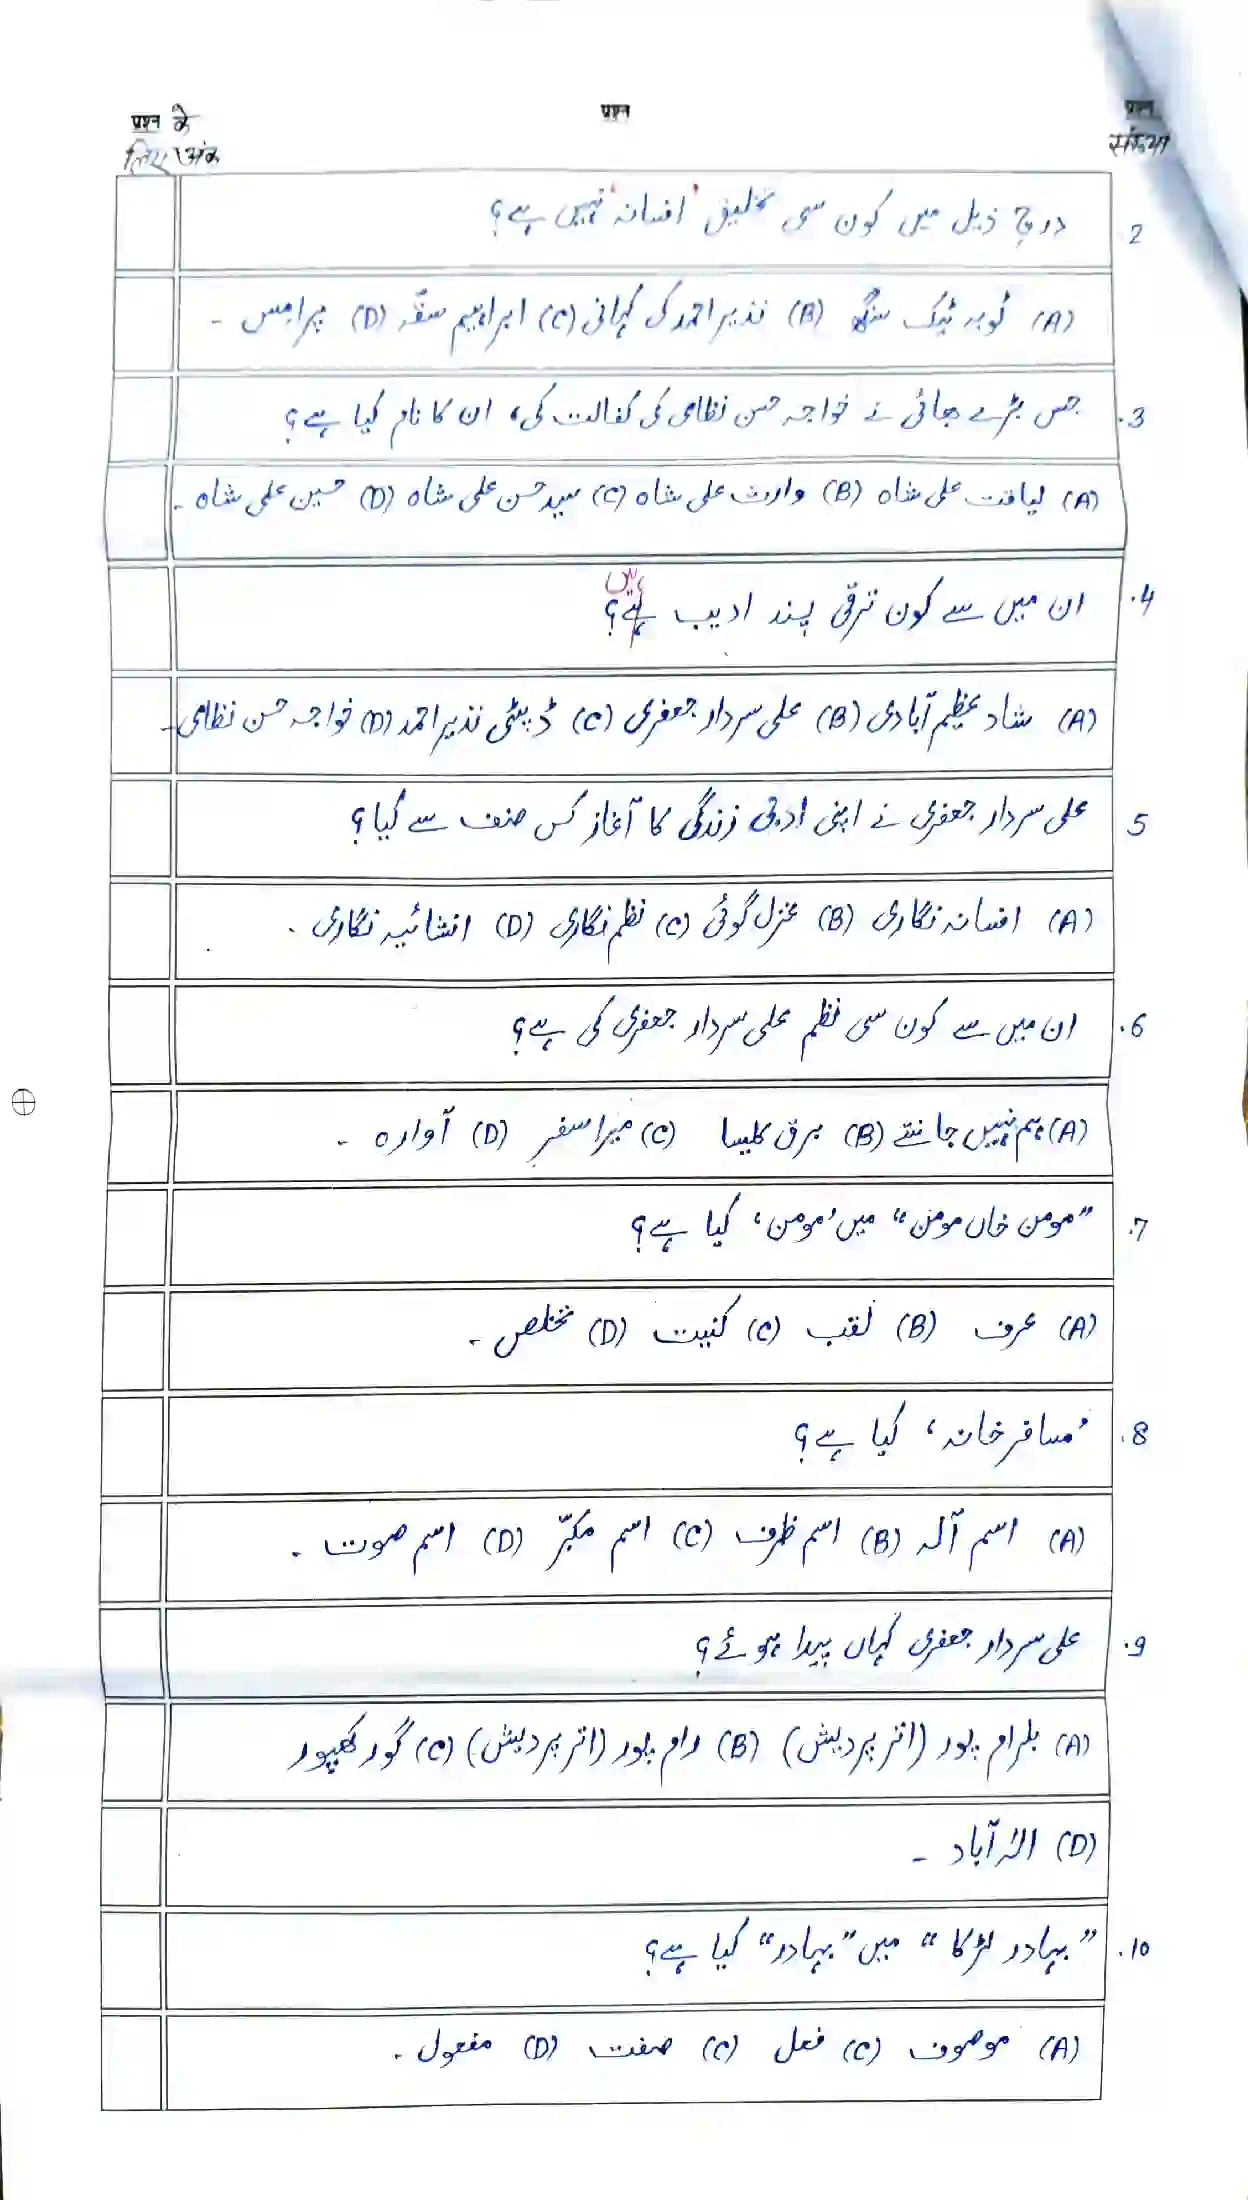 प्रश्न के लिए अंक
प्रश्न
प्रश्न संख्या
2. درج ذیل میں کون سی تخلیق 'افسانہ' نہیں ہے؟
(A) ٹوبہ ٹیک سنگھ (B) نذیر احمد کی کہانی (C) ابراہیم سقہ (D) پرامس ۔
3. جس بڑے بھائی نے خواجہ حسن نظامی کی کفالت کی، ان کا نام کیا ہے؟
(A) لیاقت علی شاہ (B) وارث علی شاہ (C) سید حسن علی شاہ (D) حسین علی شاہ ۔
4. ان میں سے کون ترقی پسند ادیب ہیں؟
(A) شاد عظیم آبادی (B) علی سردار جعفری (C) ڈپٹی نذیر احمد (D) خواجہ حسن نظامی ۔
5 علی سردار جعفری نے اپنی ادبی زندگی کا آغاز کس صنف سے کیا؟
(A) افسانہ نگاری (B) غزل گوئی (C) نظم نگاری (D) انشائیہ نگاری ۔
6. ان میں سے کون سی نظم علی سردار جعفری کی ہے؟
(A) ہم نہیں جانتے (B) برق کلیسا (C) میرا سفر (D) آوارہ ۔
7. "مومن خاں مومن" میں 'مومن' کیا ہے؟
(A) عرف (B) لقب (C) کنیت (D) تخلص ۔
8. 'مسافر خانہ' کیا ہے؟
(A) اسم آلہ (B) اسم ظرف (C) اسم مکبّر (D) اسم صوت ۔
9. علی سردار جعفری کہاں پیدا ہوئے؟
(A) بلرام پور (اتر پردیش) (B) رام پور (اتر پردیش) (C) گورکھپور
(D) الہ آباد ۔
10. "بہادر لڑکا" میں "بہادر" کیا ہے؟
(A) موصوف (C) فعل (C) صفت (D) مفعول ۔